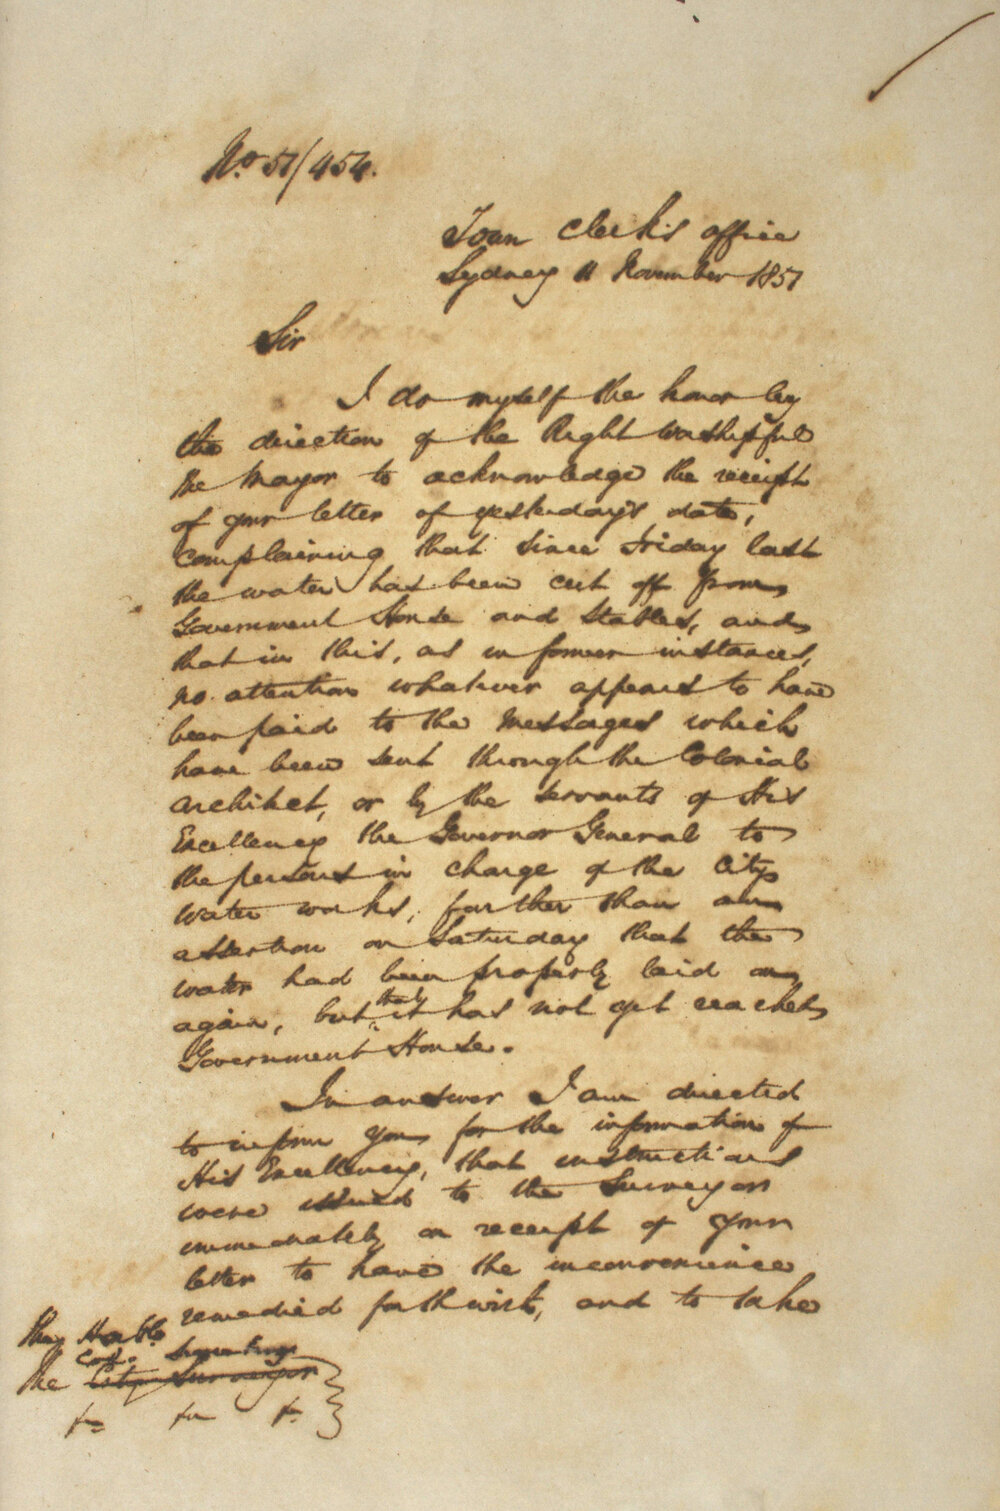 No. 51/454.
Town Clerk's office
Sydney 11 November 1851
Sir
I do myself the honor by
the direction of the Right Worshipful
the Mayor to acknowledge the receipt
of your letter of yesterday's date,
complaining that since Friday last
the water has been cut off from
Government House and Stables, and
that in this, as in former instances,
no attention whatever appears to have
been paid to the messages which
have been sent through the Colonial
Architect, or by the servants of His
Excellency the Governor General to
the persons in charge of the City
Water works, further than an
assertion on Saturday that the
water had been properly laid on
again, but that it has not yet reached
Government House.
In answer I am directed
to inform you for the information of
His Excellency, that instructions
were issued to the Surveyor
immediately on receipt of your
letter to have the inconvenience
remedied forthwith, and to take
The Honble.
Col. Secretary
The City Surveyor